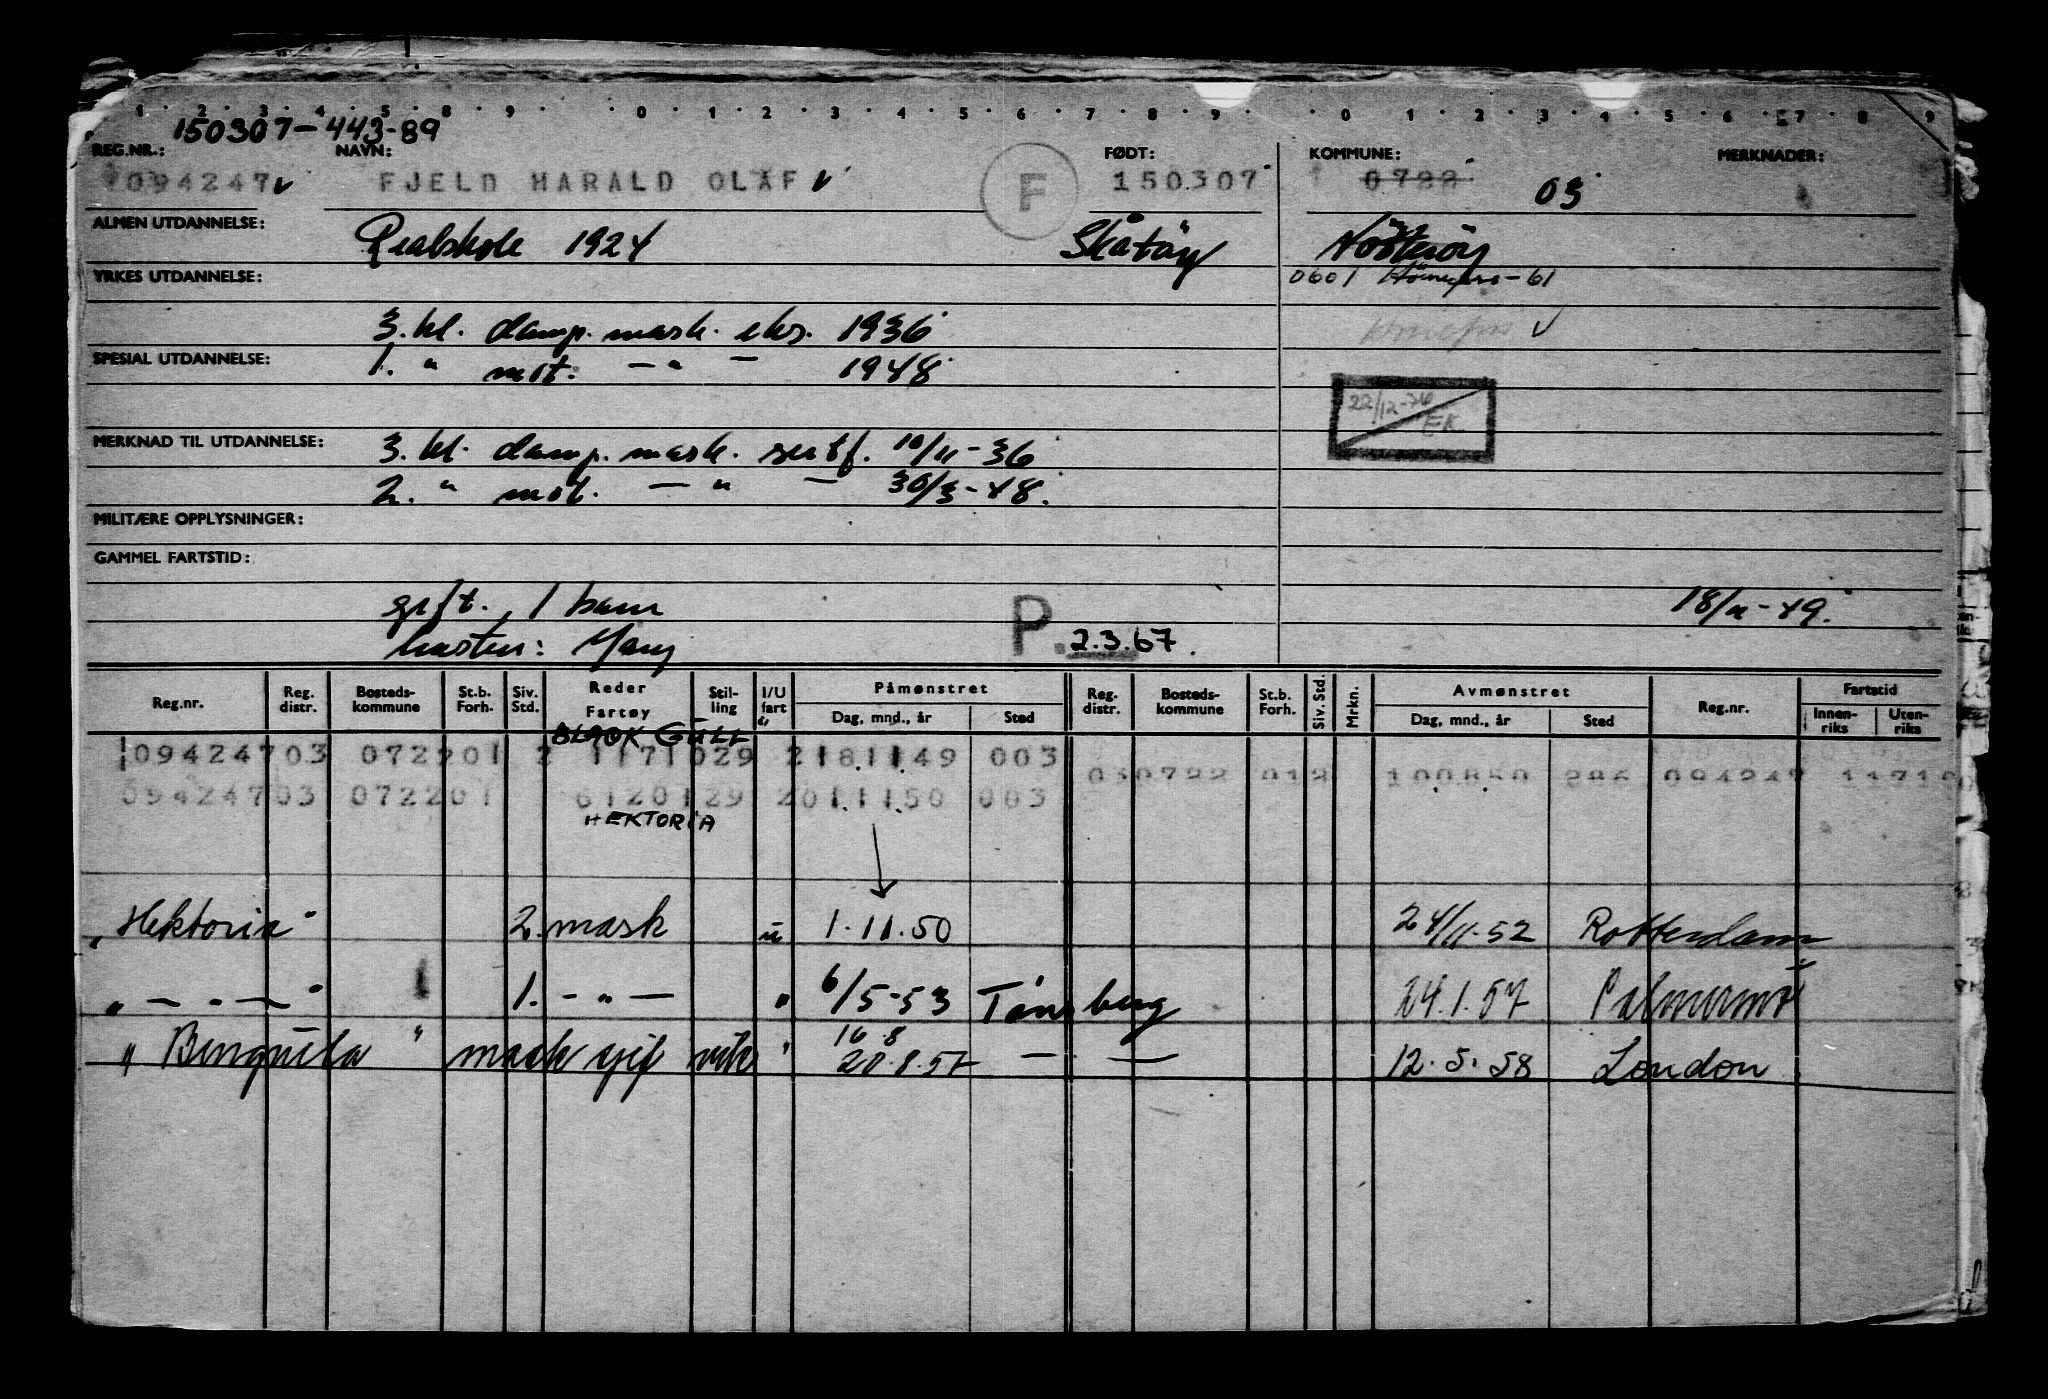 1 2 3 4 5 8 9 0 1 2 3 4 5 6 7 8 9 0 1 2 3 4 5 6 7 8 9
150307-443-89
REG.NR.: NAVN: FØDT: KOMMUNE: MERKNADER:
094247 FJELD HARALD OLAF F 150307 0722 03
ALMEN UTDANNELSE: Realskole 1924 Skåtöy Nötteröy
YRKES UTDANNELSE: 0601 Hönefoss-61
3. kl. damp. mask. eks. 1936
SPESIAL UTDANNELSE: 1. " mot. - " - 1948
22/12-36 EK
MERKNAD TIL UTDANNELSE: 3. kl. damp. mask. sertf. 10/11-36
2. " mot. - " - 30/3-48.
MILITÆRE OPPLYSNINGER:
GAMMEL FARTSTID:
gift. 1 barn 18/11-49.
hustru: Mary P. 2.3.67.
Reg.nr. Reg. distr. Bosteds-kommune St.b. Forh. Siv. Std. Reder Fartøy Stil-ling I/U fart Påmønstret Dag, mnd., år Sted Reg. distr. Bosteds-kommune St.b. Forh. Siv. Std. Mrkn. Avmønstret Dag, mnd., år Sted Reg.nr. Fartstid Innen-riks Uten-riks
BLACK GULL
094247 03 0722 01 2 1171 029 2 181149 003 03 0722 012 100850 094247
094247 03 0722 01 6120 129 2 011150 003
HEKTORIA
"Hektoria" 2. mask u 1.11.50 24/11.52 Rotterdam
" - . - " 1. - " - " 6/5-53 Tönsberg 24.1.57
16 8
" Benguela " mask " 20.8.57 - " - 12.5.58 London